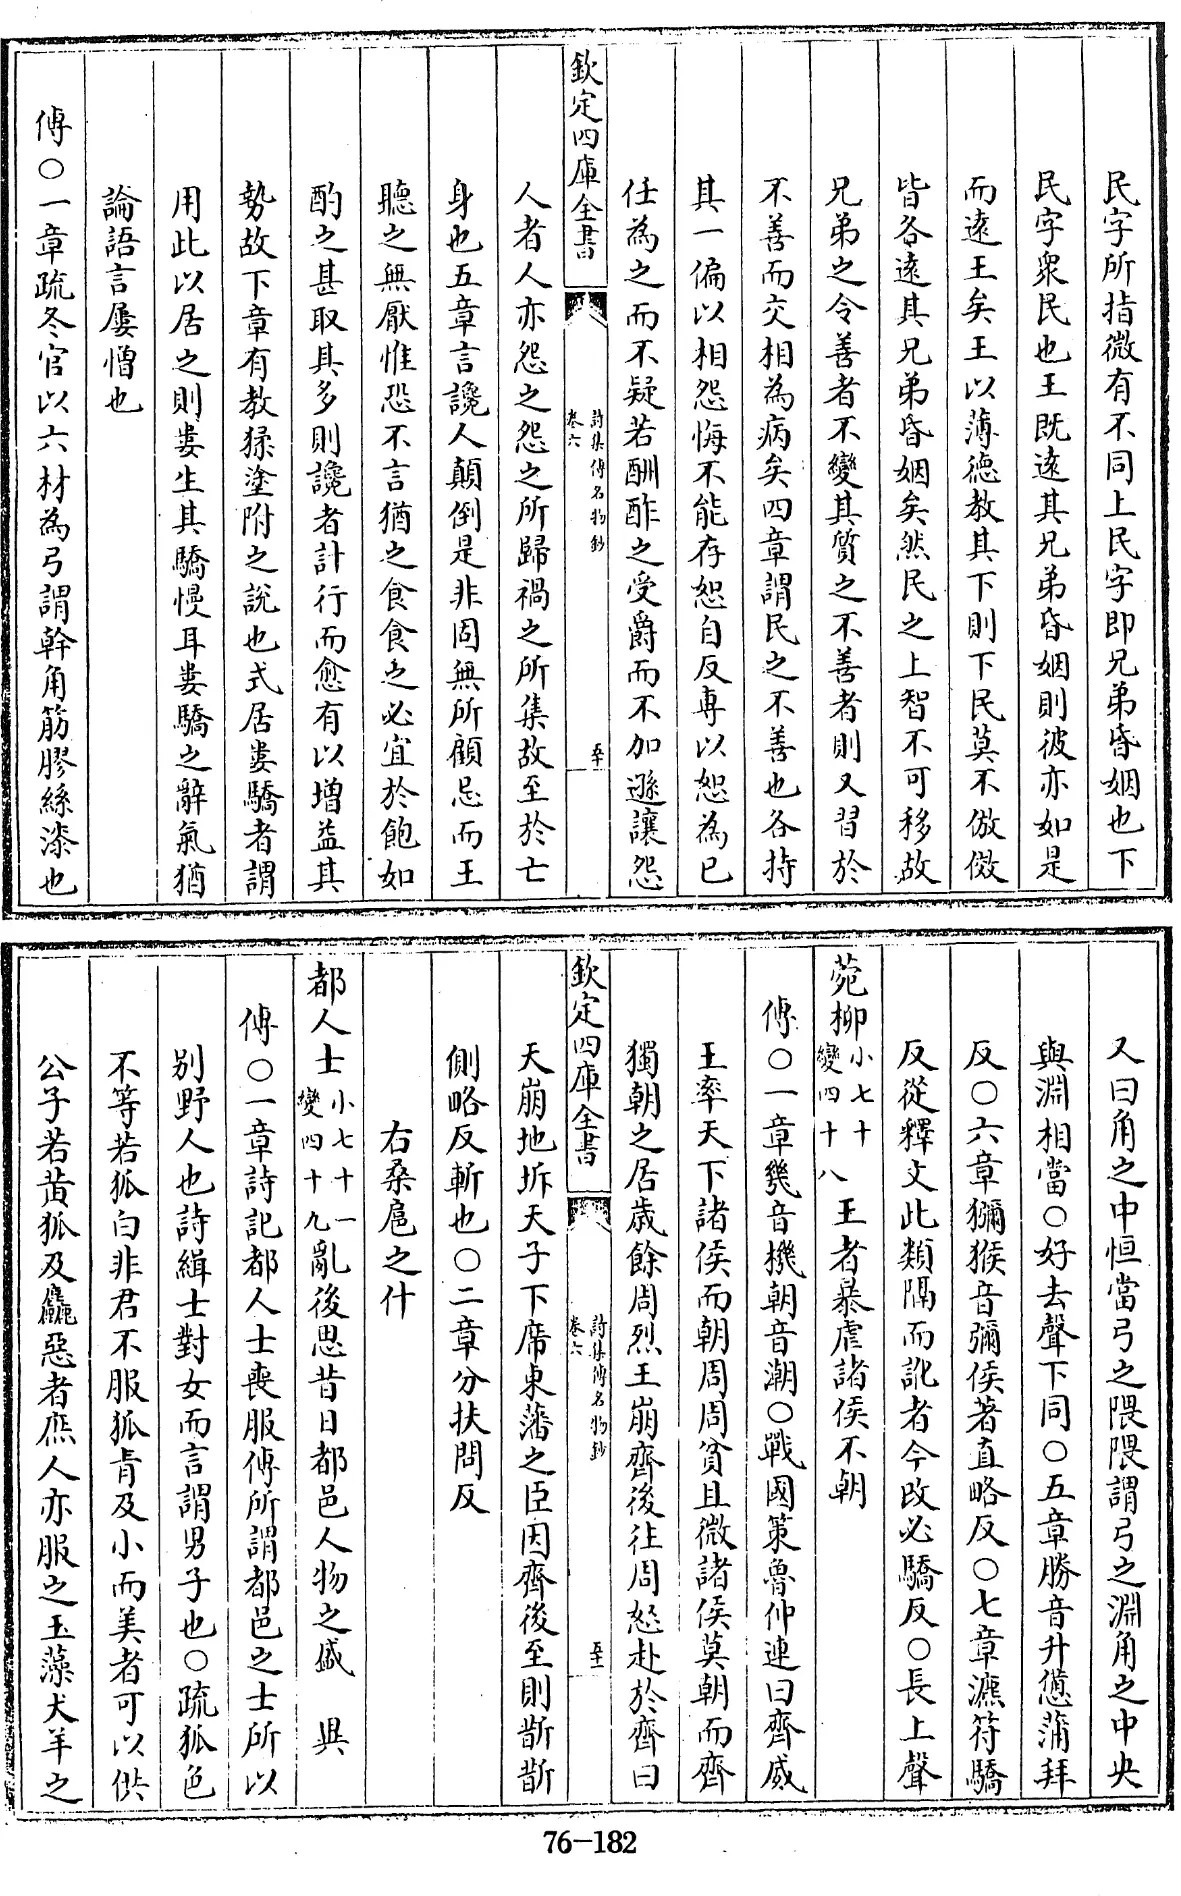 民字所指微有不同上民字即兄弟昏姻也下
民字衆民也王既逺其兄弟昏姻則彼亦如是
而逺王矣王以薄徳教其下則下民莫不倣傚
皆各逺其兄弟昏姻矣然民之上智不可移故
兄弟之令善者不變其質之不善者則又習於
不善而交相為病矣四章謂民之不善也各持
其一偏以相怨悔不能存恕自反専以恕為已
任為之而不疑若酬酢之受爵而不加遜讓怨
欽定四庫全書
詩集傳名物鈔
卷六
五十
人者人亦怨之怨之所歸禍之所集故至於亡
身也五章言讒人顛倒是非固無所顧忌而王
聽之無厭惟恐不言猶之食食之必宜於飽如
酌之甚取其多則讒者計行而愈有以増益其
勢故下章有教猱塗附之說也式居婁驕者謂
用此以居之則婁生其驕慢耳婁驕之辭氣猶
論語言屢憎也
傳○一章疏冬官以六材為弓謂幹角筋膠絲漆也
又曰角之中恒當弓之隈隈謂弓之淵角之中央
與淵相當○好去聲下同○五章勝音升憊蒲拜
反○六章獼猴音彌侯著直略反○七章瀌符驕
反從釋文此類隔而訛者今改必驕反○長上聲
菀柳小七十變四十八王者暴虐諸侯不朝
傳○一章幾音機朝音潮○戰國策魯仲連曰齊威
王率天下諸侯而朝周周貧且微諸侯莫朝而齊
獨朝之居歳餘周烈王崩齊後往周怒赴於齊曰
欽定四庫全書
詩集傳名物鈔
卷六
五十一
天崩地坼天子下席東藩之臣因齊後至則斮斮
側略反斬也○二章分扶問反
右桑扈之什
都人士小七十一變四十九亂後思昔日都邑人物之盛 興
傳○一章詩記都人士䘮服傳所謂都邑之士所以
别野人也詩緝士對女而言謂男子也○疏狐色
不等若狐白非君不服狐青及小而美者可以供
公子若黄狐及麤惡者庶人亦服之玉藻犬羊之
76-182